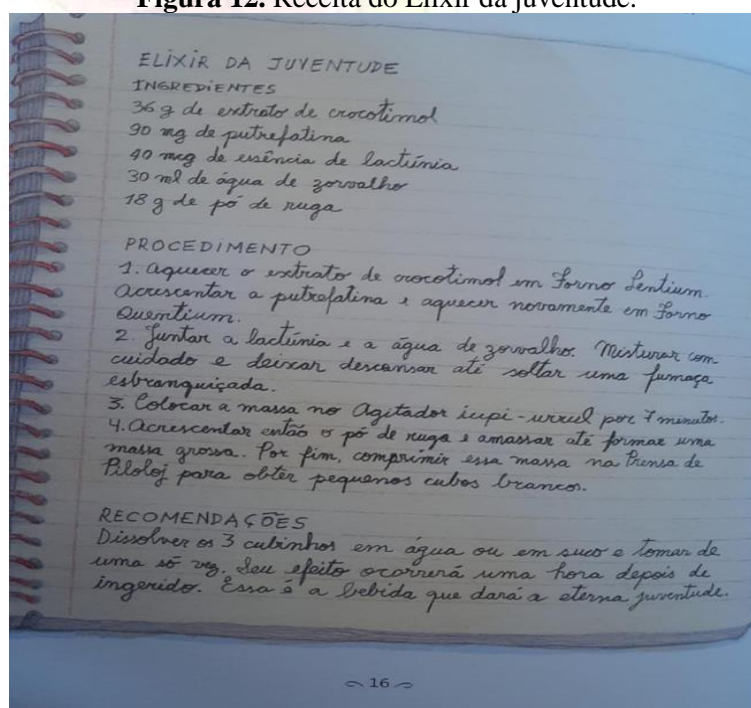 Figura 12. Receita do Elixir da juventude.
ELIXIR DA JUVENTUDE
INGREDIENTES
36 g de extrato de crocotimol
90 mg de putrefatina
40 mcg de essência de lactúnia
30 ml de água de zorvalho
18 g de pó de ruga
PROCEDIMENTO
1. Aquecer o extrato de crocotimol em Forno Lentium.
Acrescentar a putrefatina e aquecer novamente em Forno
Quentium.
2. Juntar a lactúnia e a água de zorvalho. Misturar com
cuidado e deixar descansar até soltar uma fumaça
esbranquiçada.
3. Colocar a massa no Agitador iupi-urrul por 7 minutos.
4. Acrescentar então o pó de ruga e amassar até formar uma
massa grossa. Por fim, comprimir essa massa na Prensa de
Piloloj para obter pequenos cubos brancos.
RECOMENDAÇÕES
Dissolver os 3 cubinhos em água ou em suco e tomar de
uma só vez. Seu efeito ocorrerá uma hora depois de
ingerido. Essa é a bebida que dará a eterna juventude.
16